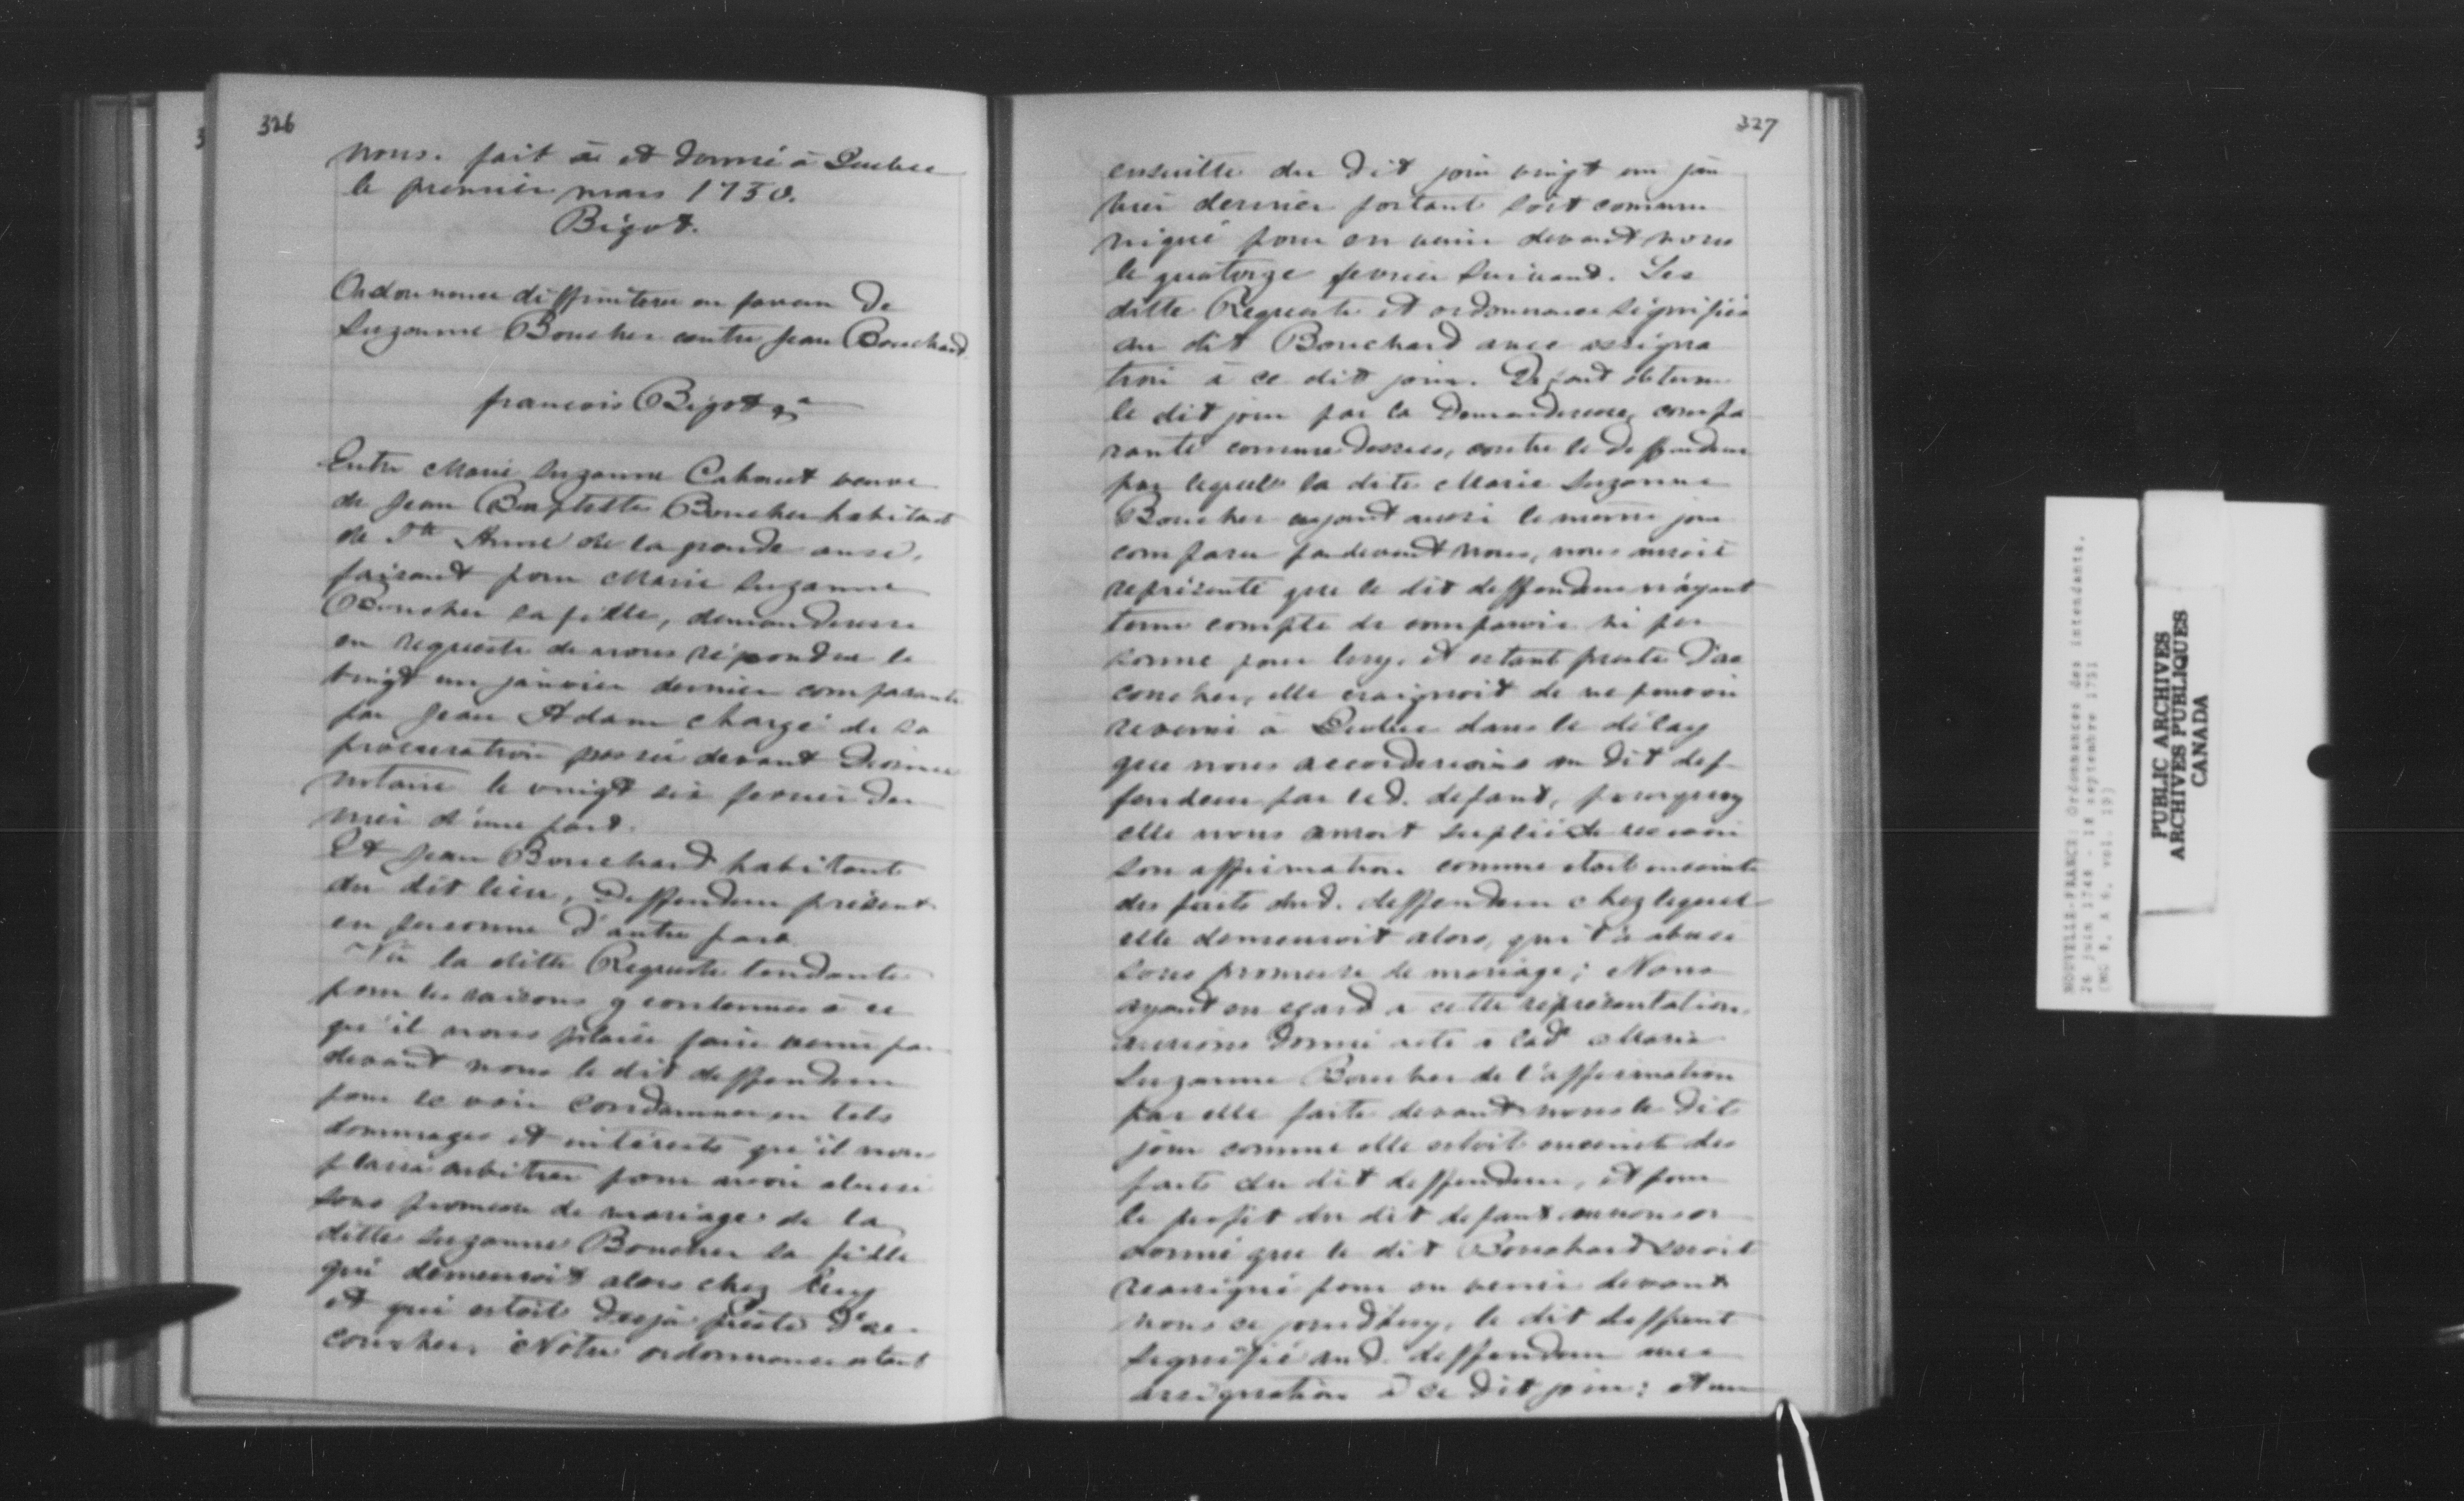 326
nous. fait ā et donné à Quebec
le premier mars 1750.
Bigot.
Ordonnance diffinitive en faveur de
Suzanne Boucher contre Jean Bouchard
francois Bigot &a
Entre Marie Suzanne Cahouet veuve
de Jean Baptiste Boucher habitant
de Ste Anne de la grande anse,
faisant pour Marie Suzanne
Boucher sa fille, demanderesse
en requeste de nous répondue le
vingt un janvier dernier comparante
par Jean Adam chargé de sa
procuration passée devant Dionne
notaire le vingt six fevrier der
nier d'une part.
Et Jean Bouchard habitant
du dit lieu, Deffendeur présent
en personne d'autre part
Vu la ditte Requeste tendante
pour les raisons y contenues à ce
qu'il nous plaise faire venir par
devant nous le dit deffendeur
pour se voir condamner en tels
dommages et intérests qu'il nous
plaira arbitrer pour avoir abusé
sous promesse de mariage de la
ditte Suzanne Boucher sa fille
qui demeuroit alors chez luy
et qui estoit desja preste d'ac
coucher. Notre ordonnance estant
327
ensuitte du dit jour vingt un jan
vier dernier portant soit commu
niqué pour en venir devant nous
le quatorze fevrier suivant. Les
ditte Requeste et ordonnance signifiés
au dit Bouchard avec assigna
tion à ce dit jour. Defaut obtenu
le dit jour par la Demanderesse, compa
rante comme dessus, contre le deffendeur
par lequel la dite Marie Suzanne
Boucher ayant aussi le meme jour
comparu pardevant nous, nous auroit
représenté que le dit deffendeur n'ayant
tenu compte de comparoir ni per
sonne pour luy, et estant preste d'ac
coucher, elle craignoit de ne pouvoir
revenir à Quebec dans le délay
que nous accorderions au dit def
fendeur par led. defaut, pourquoy
elle nous auroit suplié de recevoir
son affirmation comme etoit enceinte
des faits dud. deffendeur chez lequel
elle demeuroit alors, qui l'a abusé
sous promesse de mariage; Nous
ayant eu egard a cette représentation,
aurions donné acte à lad. Marie
Suzanne Boucher de l'affirmation
par elle faite devant nous le dit
jour comme elle estoit enceinte des
faits du dit deffendeur, et pour
le profit du dit defaut aurions or
donné que le dit Bouchard seroit
reassigné pour en venir devant
nous ce jourdhuy, le dit deffaut
signifié aud. deffendeur avec
assignation à ce dit jour; et un
NOUVELLE-FRANCE: Ordonnances des intendants.
26 juin 1748 - 18 septembre 1751
(MG 8, A 6, vol. 19)
PUBLIC ARCHIVES
ARCHIVES PUBLIQUES
CANADA